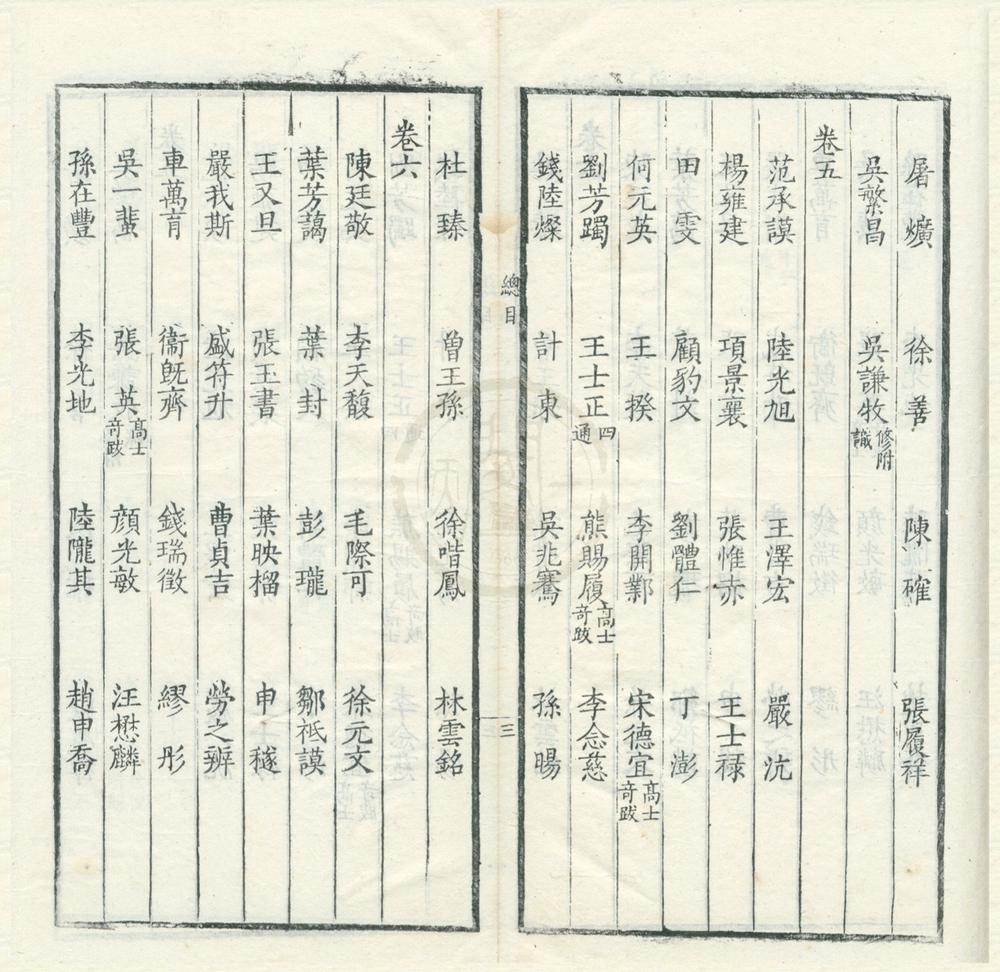 屠爌 徐善 陳確 張履祥
吳繁昌 吳謙牧修附識
卷五
范承謨 陸光旭 王澤宏 嚴沆
楊雍建 項景襄 張惟赤 王士祿
田雯 顧豹文 劉體仁 丁澎
何元英 王揆 李開鄴 宋德宜高士奇跋
劉芳躅 王士正四通 熊賜履高士奇跋 李念慈
錢陸燦 計東 吳兆騫 孫暘
總目
三
杜臻 曾王孫 徐喈鳳 林雲銘
卷六
陳廷敬 李天馥 毛際可 徐元文
葉芳藹 葉封 彭瓏 鄒祗謨
王又旦 張玉書 葉映榴 申穟
嚴我斯 盛符升 曹貞吉 勞之辨
車萬育 衞既齊 錢瑞徵 繆彤
吳一蜚 張英高士奇跋 顏光敏 汪懋麟
孫在豐 李光地 陸隴其 趙申喬